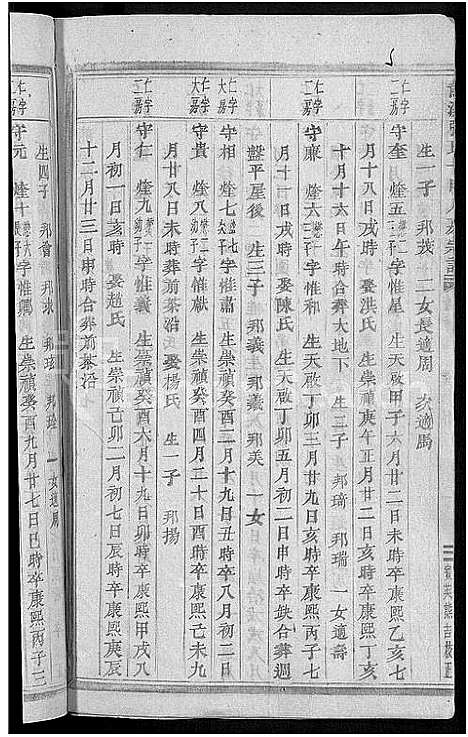 生一子 邦莪 二女長適周 次適馬
仁字二嘉 守奎 燈五 字惟星 生天啟甲子六月廿二日未時卒康熙乙亥七
月十八日戌時 娶洪氏 生崇禎庚午正月廿二日亥時卒康熙丁亥
十月十六日午時合葬大地下 生二子 邦琦 邦瑞 一女適壽
仁字二嘉 守廉 燈六 字惟和 生天啟丁卯三月廿九日亥時卒康熙丙子七
月十一日 娶陳氏 生天啟丁卯五月初二日申時卒缺合葬週
盤平屋後 生三子 邦義 邦羲 邦美 一女
仁字大嘉 守相 燈七 字惟 生崇禎癸酉二月十九日丑時卒八月初二日
仁字大嘉 守貴 燈八 字惟獻 生崇禎癸酉四月三十日酉時卒康熙己未九
月廿八日未時葬前茶沿 娶楊氏 生一子 邦揚
仁字二嘉 守仁 燈九 字惟義 生崇禎癸酉六月十九日卯時卒康熙甲戌八
月初一日亥時 娶趙氏 生崇禎己卯二月初七日辰時卒康熙庚辰
十二月廿三日申時合葬前茶沿
生四子 邦曾 邦球 邦珍 邦瑢 一女適周
仁字二嘉 守元 燈十 字惟 生崇禎癸酉九月廿七日巳時卒康熙丙子三